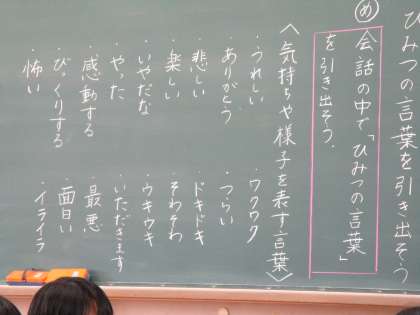 ひみつの言葉を引き出そう
め
会話の中で「ひみつの言葉」
を引き出そう。
〈気持ちや様子を表す言葉〉
・うれしい
・ワクワク
・ありがとう
・つらい
・悲しい
・ドキドキ
・楽しい
・そわそわ
・いやだな
・ウキウキ
・やった
・いただきます
・感動する
・最悪
・びっくりする
・面白い
・怖い
・イライラ